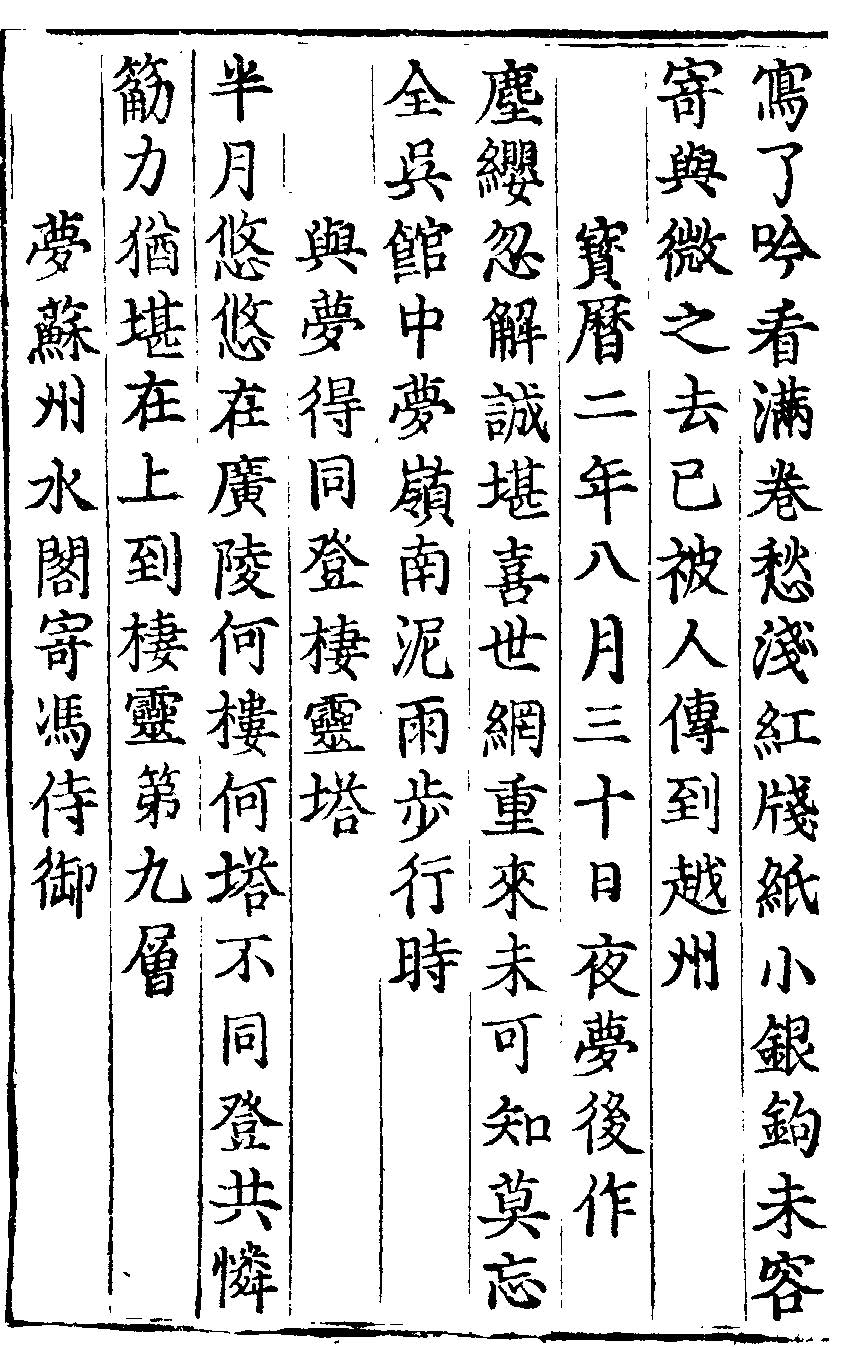 寫了吟看滿卷愁淺紅牋紙小銀鉤未容
寄與微之去已被人傳到越州
寳曆二年八月三十日夜夢後作
塵纓忽解誠堪喜世網重來未可知莫忘
全吳館中夢嶺南泥雨步行時
與夢得同登棲靈塔
半月悠悠在廣陵何樓何塔不同登共憐
筋力猶堪在上到棲靈第九層
夢蘇州水閣寄馮侍御